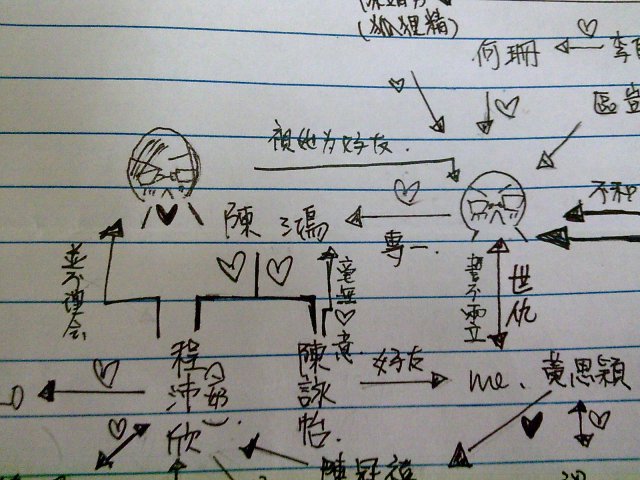 (狐狸精)
何珊
李
區豈
視她為好友.
不和
陳
鴻
專一.
並不理會
毫無♡意.
誓不兩立
世仇
程沛欣
陳詠怡.
好友
me.
黃思穎
陳冠禧